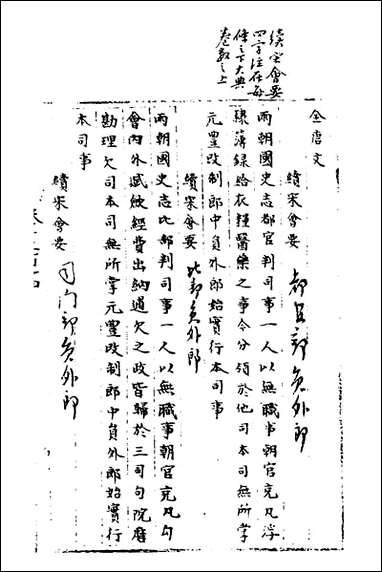 續宋會要
四字注在每
條之下大典
卷數之上
全唐文
續宋會要 都官部員外郎
兩朝國史志都官判司事一人以無職事朝官充凡浮
隸簿錄給衣糧醫藥之事令分領於他司本司無所掌
元豐改制郎中員外郎始實行本司事
續宋會要 比部員外郎
兩朝國史志比部判司事一人以無職事朝官充凡勾
會內外賦斂經費出納逋欠之政皆歸於三司勾院磨
勘理欠司本司無所掌元豐改制郎中員外郎始實行
本司事
續宋會要 司門部員外郎